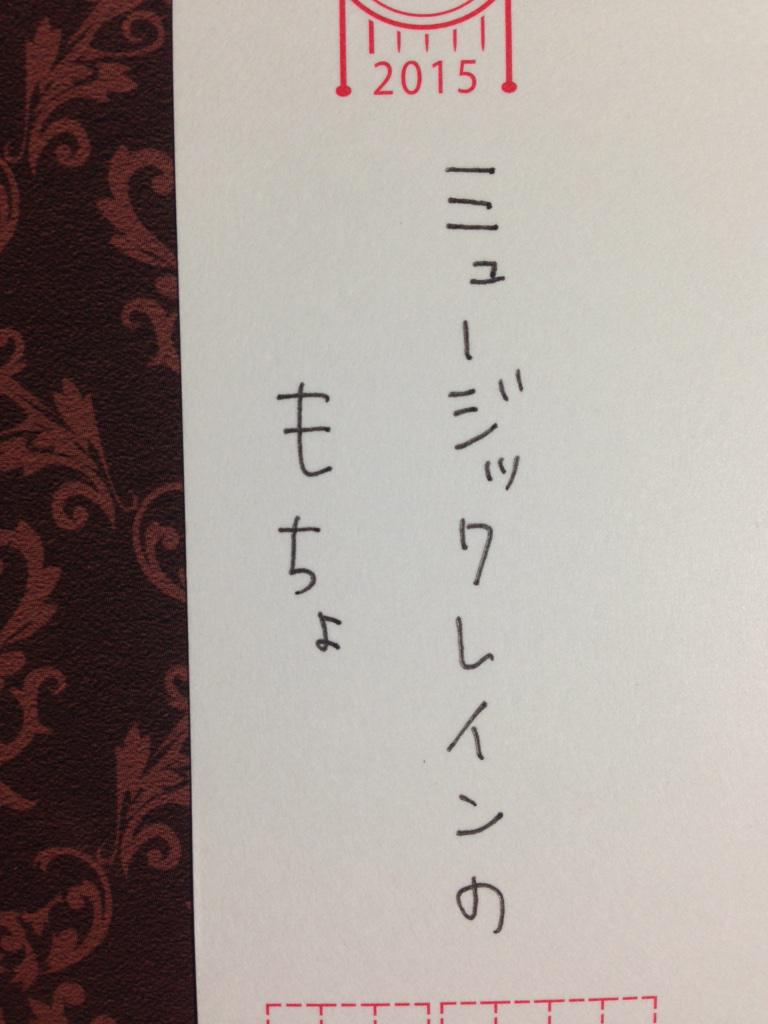 2015
ミュージックレインの
もちょ